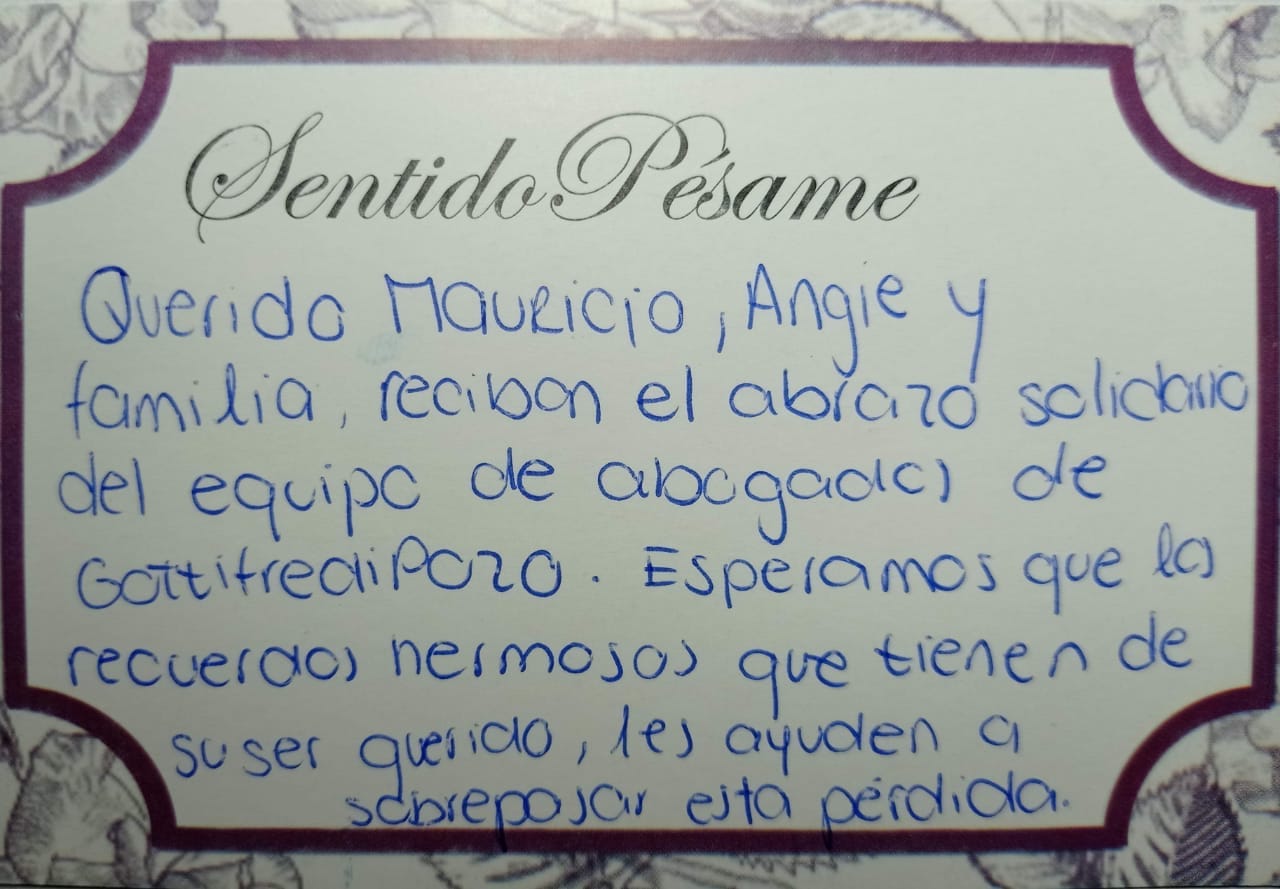 Sentido Pésame
Querido Mauricio, Angie y
familia, reciban el abrazo solidario
del equipo de abogados de
GottifrediPozo. Esperamos que los
recuerdos hermosos que tienen de
su ser querido, les ayuden a
sobrepasar esta pérdida.